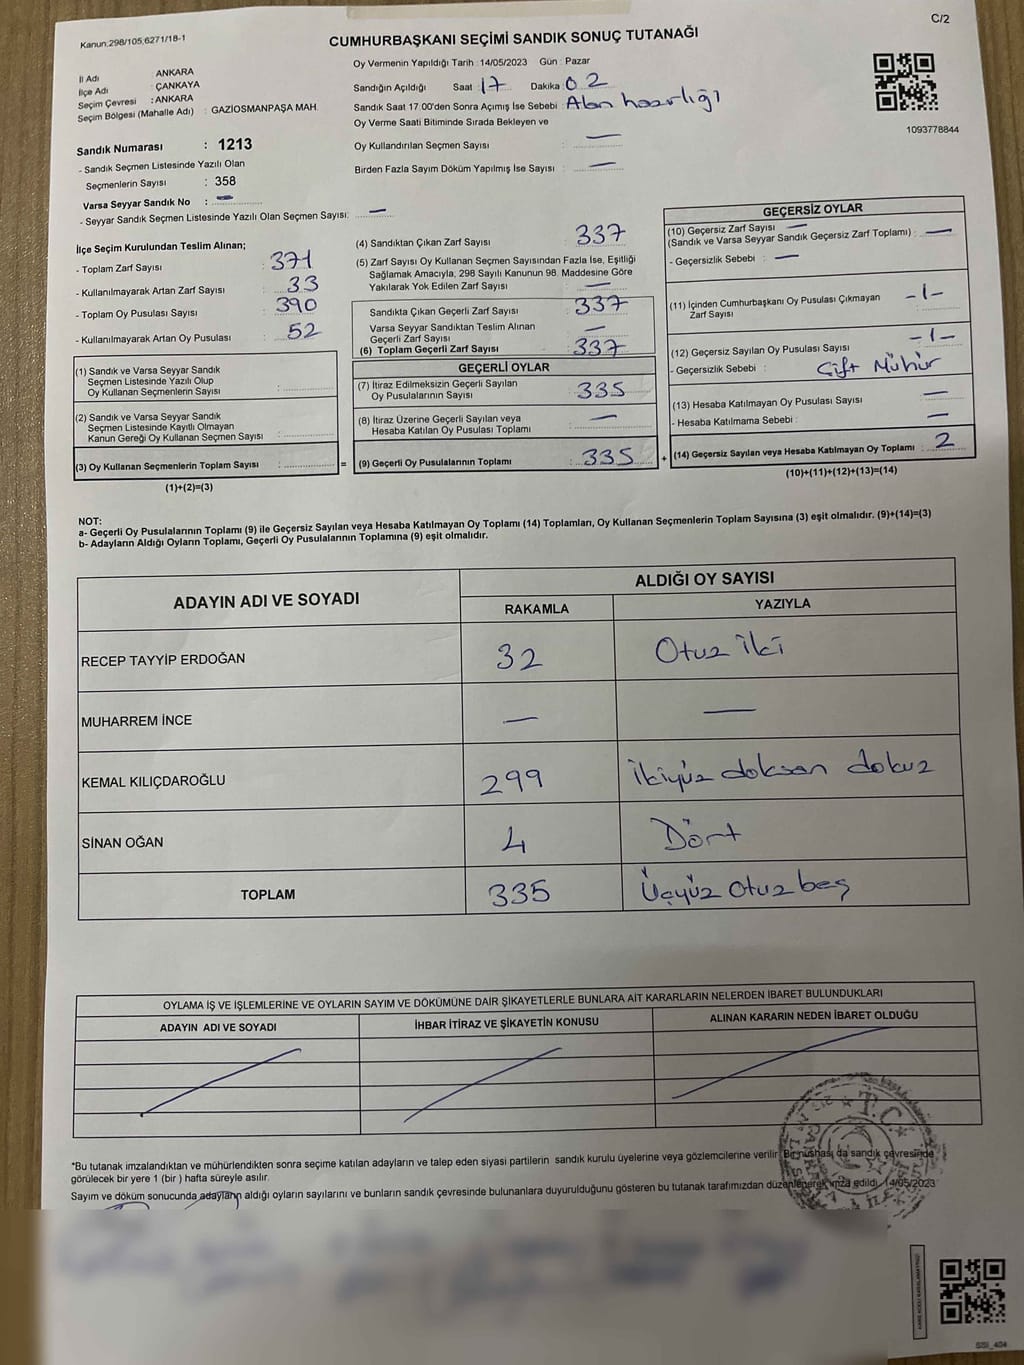 C/2
Kanun:298/105,6271/18-1
CUMHURBAŞKANI SEÇİMİ SANDIK SONUÇ TUTANAĞI
İl Adı : ANKARA
İlçe Adı : ÇANKAYA
Seçim Çevresi : ANKARA
Seçim Bölgesi (Mahalle Adı) : GAZİOSMANPAŞA MAH.
Oy Vermenin Yapıldığı Tarih : 14/05/2023 Gün : Pazar
Sandığın Açıldığı Saat : 17 Dakika : 02
Sandık Saat 17.00'den Sonra Açımış İse Sebebi : Alan hazırlığı
Oy Verme Saati Bitiminde Sırada Bekleyen ve
Oy Kullandırılan Seçmen Sayısı : —
Birden Fazla Sayım Döküm Yapılmış İse Sayısı : —
1093778844
Sandık Numarası : 1213
- Sandık Seçmen Listesinde Yazılı Olan
Seçmenlerin Sayısı : 358
Varsa Seyyar Sandık No : —
- Seyyar Sandık Seçmen Listesinde Yazılı Olan Seçmen Sayısı: —
İlçe Seçim Kurulundan Teslim Alınan;
- Toplam Zarf Sayısı : 371
- Kullanılmayarak Artan Zarf Sayısı : 33
- Toplam Oy Pusulası Sayısı : 390
- Kullanılmayarak Artan Oy Pusulası : 52
(1) Sandık ve Varsa Seyyar Sandık
Seçmen Listesinde Yazılı Olup
Oy Kullanan Seçmenlerin Sayısı :
(2) Sandık ve Varsa Seyyar Sandık
Seçmen Listesinde Kayıtlı Olmayan
Kanun Gereği Oy Kullanan Seçmen Sayısı :
(3) Oy Kullanan Seçmenlerin Toplam Sayısı : =
(1)+(2)=(3)
(4) Sandıktan Çıkan Zarf Sayısı : 337
(5) Zarf Sayısı Oy Kullanan Seçmen Sayısından Fazla İse, Eşitliği
Sağlamak Amacıyla, 298 Sayılı Kanunun 98. Maddesine Göre
Yakılarak Yok Edilen Zarf Sayısı : —
Sandıkta Çıkan Geçerli Zarf Sayısı : 337
Varsa Seyyar Sandıktan Teslim Alınan
Geçerli Zarf Sayısı : —
(6) Toplam Geçerli Zarf Sayısı : 337
GEÇERLİ OYLAR
(7) İtiraz Edilmeksizin Geçerli Sayılan
Oy Pusulalarının Sayısı : 335
(8) İtiraz Üzerine Geçerli Sayılan veya
Hesaba Katılan Oy Pusulası Toplamı : —
(9) Geçerli Oy Pusulalarının Toplamı : 335 +
GEÇERSİZ OYLAR
(10) Geçersiz Zarf Sayısı —
(Sandık ve Varsa Seyyar Sandık Geçersiz Zarf Toplamı) : —
- Geçersizlik Sebebi : —
(11) İçinden Cumhurbaşkanı Oy Pusulası Çıkmayan
Zarf Sayısı : -1-
(12) Geçersiz Sayılan Oy Pusulası Sayısı : -1-
- Geçersizlik Sebebi : Çift Mühür
(13) Hesaba Katılmayan Oy Pusulası Sayısı : —
- Hesaba Katılmama Sebebi : —
(14) Geçersiz Sayılan veya Hesaba Katılmayan Oy Toplamı : 2
(10)+(11)+(12)+(13)=(14)
NOT:
a- Geçerli Oy Pusulalarının Toplamı (9) ile Geçersiz Sayılan veya Hesaba Katılmayan Oy Toplamı (14) Toplamları, Oy Kullanan Seçmenlerin Toplam Sayısına (3) eşit olmalıdır. (9)+(14)=(3)
b- Adayların Aldığı Oyların Toplamı, Geçerli Oy Pusulalarının Toplamına (9) eşit olmalıdır.
ADAYIN ADI VE SOYADI ALDIĞI OY SAYISI
RAKAMLA YAZIYLA
RECEP TAYYİP ERDOĞAN 32 Otuz iki
MUHARREM İNCE — —
KEMAL KILIÇDAROĞLU 299 ikiyüz doksan dokuz
SİNAN OĞAN 4 Dört
TOPLAM 335 Üçyüz Otuz beş
OYLAMA İŞ VE İŞLEMLERİNE VE OYLARIN SAYIM VE DÖKÜMÜNE DAİR ŞİKAYETLERLE BUNLARA AİT KARARLARIN NELERDEN İBARET BULUNDUKLARI
ADAYIN ADI VE SOYADI İHBAR İTİRAZ VE ŞİKAYETİN KONUSU ALINAN KARARIN NEDEN İBARET OLDUĞU
*Bu tutanak imzalandıktan ve mühürlendikten sonra seçime katılan adayların ve talep eden siyasi partilerin sandık kurulu üyelerine veya gözlemcilerine verilir. Bir nüshası da sandık çevresinde
görülecek bir yere 1 (bir ) hafta süreyle asılır.
Sayım ve döküm sonucunda adayların aldığı oyların sayılarını ve bunların sandık çevresinde bulunanlara duyurulduğunu gösteren bu tutanak tarafımızdan düzenlenerek imza edildi. 14/05/2023
T.C.
SSI_404